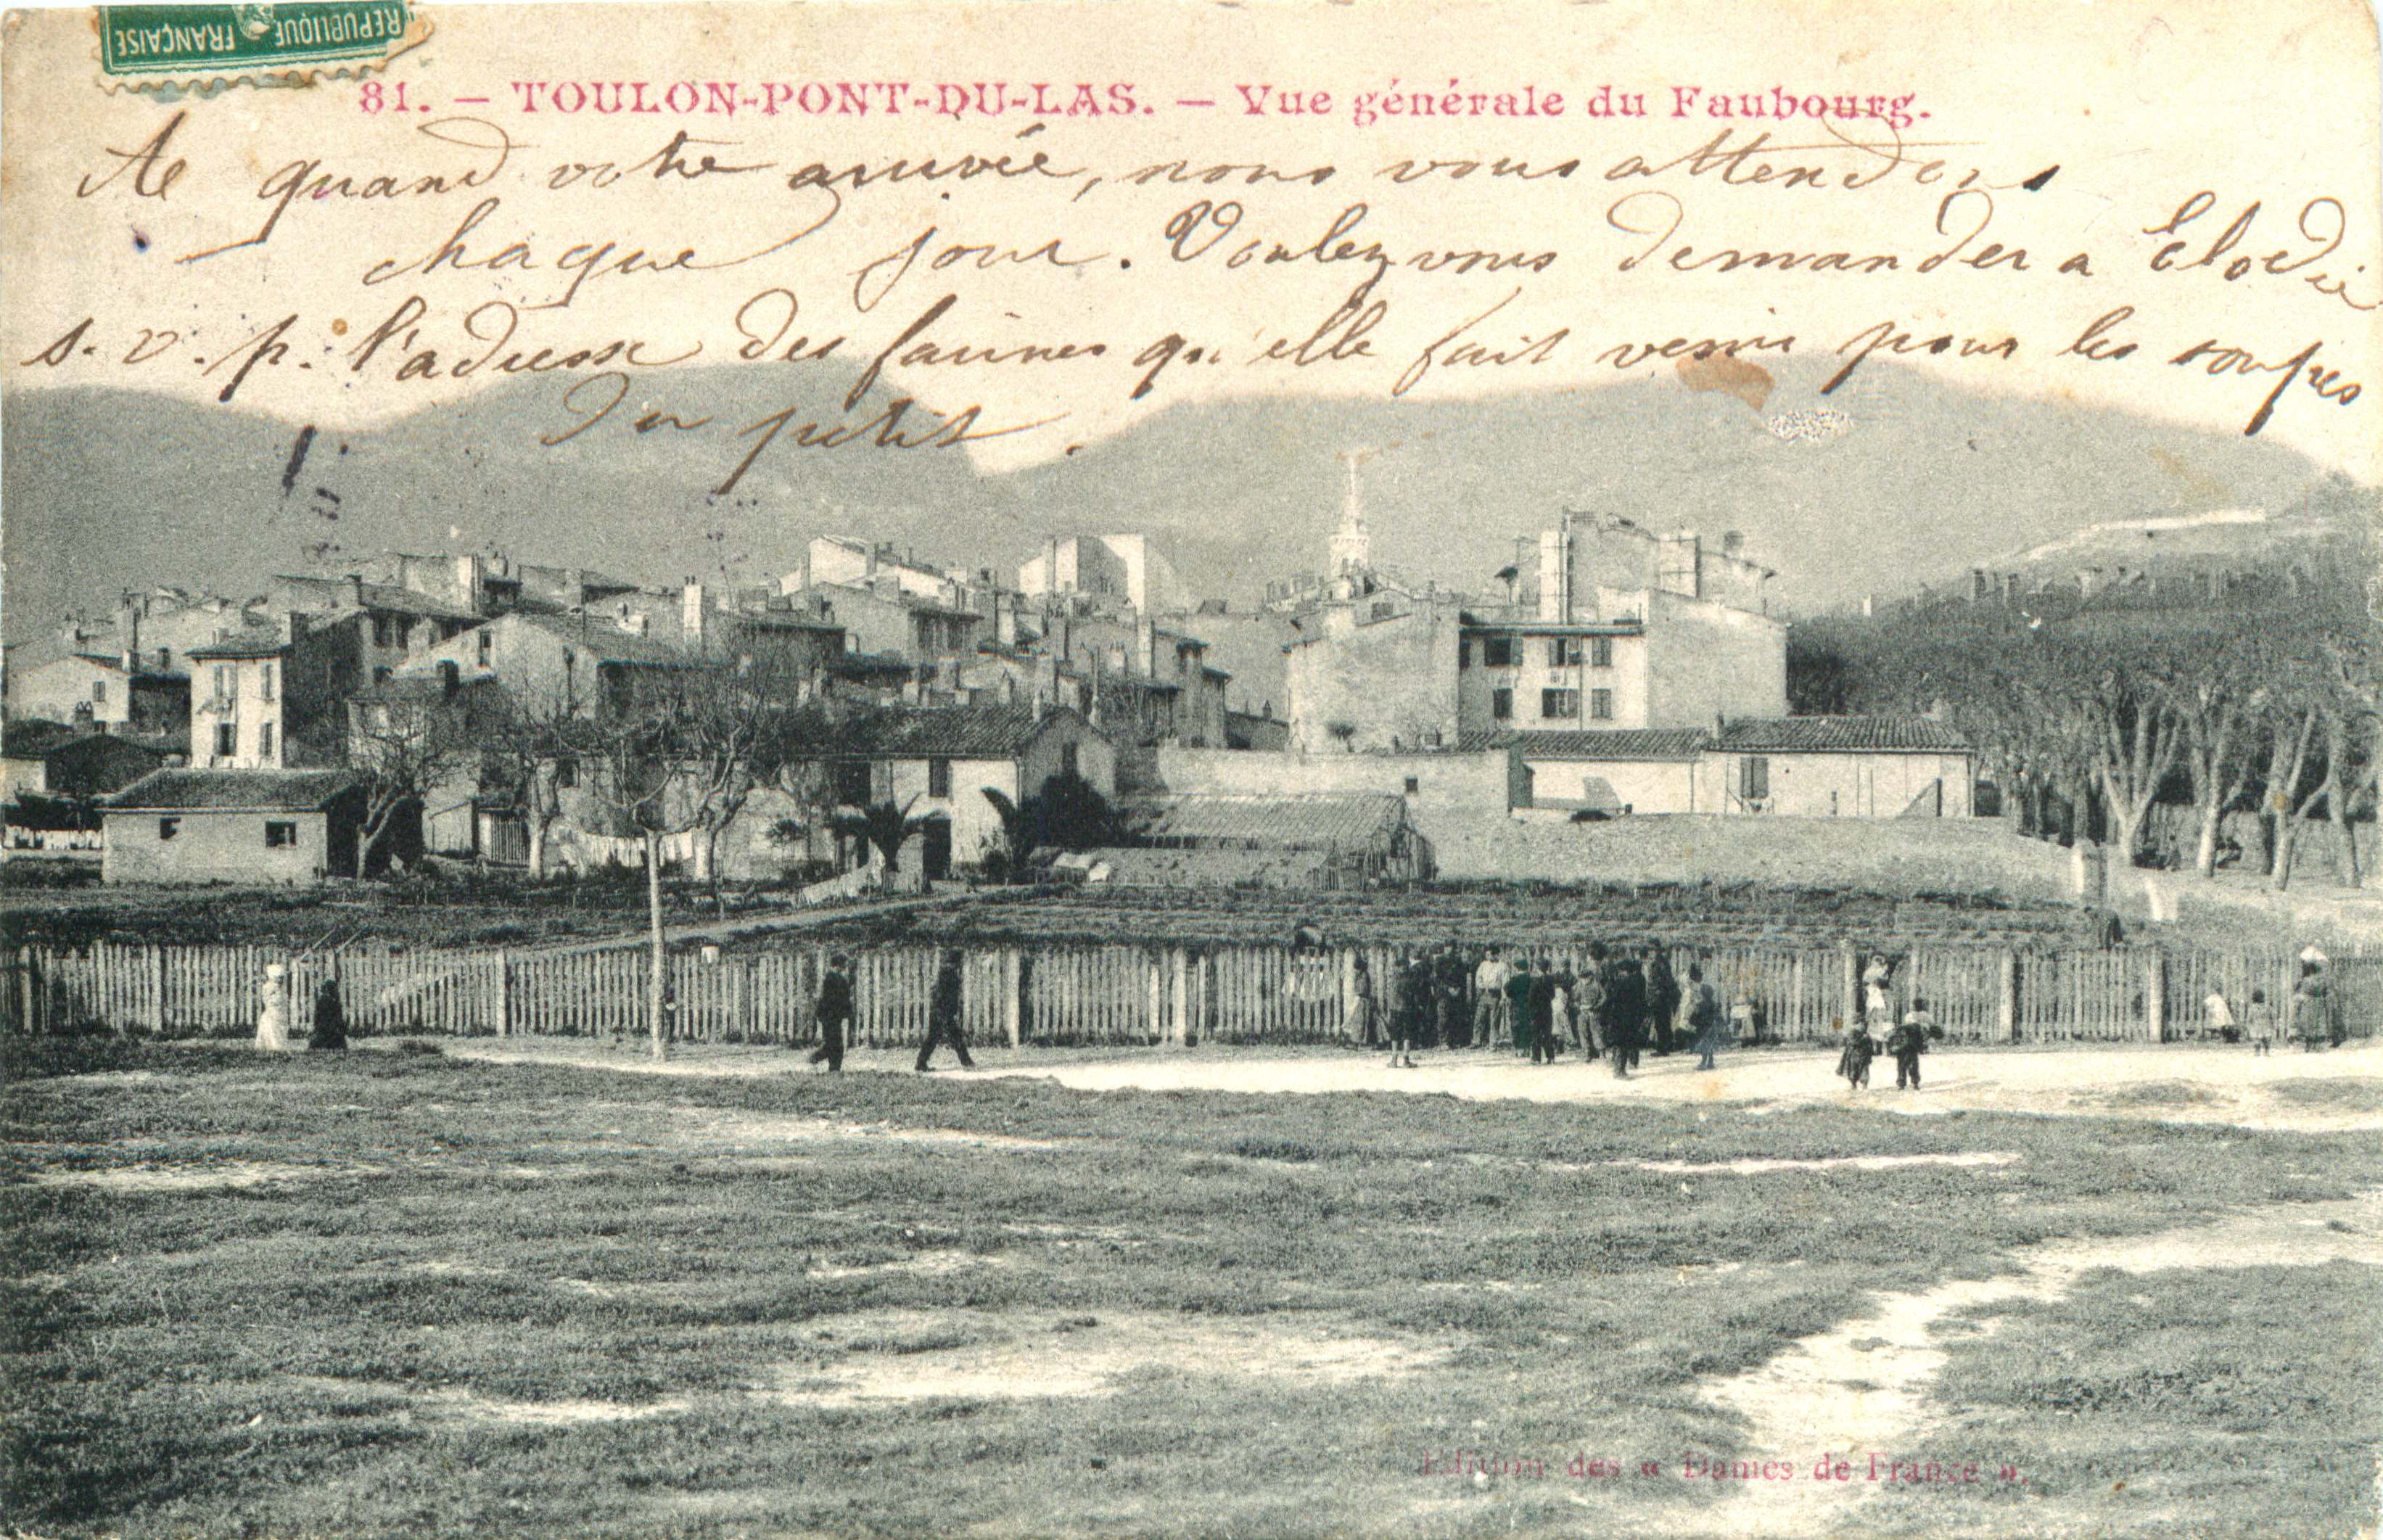 RÉPUBLIQUE FRANÇAISE
81. — TOULON-PONT-DU-LAS. — Vue générale du Faubourg.
A quand votre arrivée, nous vous attendons
chaque jour. Voulez vous demander a Elodie
s. v. p. l'adresse des farines qu'elle fait venir pour les soupes
du petit.
Edition des « Dames de France ».